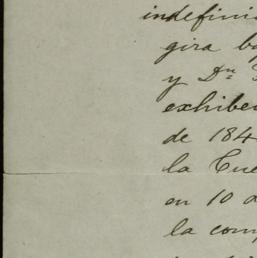 indefini
gira b
y Dn
exhibe
de 184
la Cue
en 10 d
la com